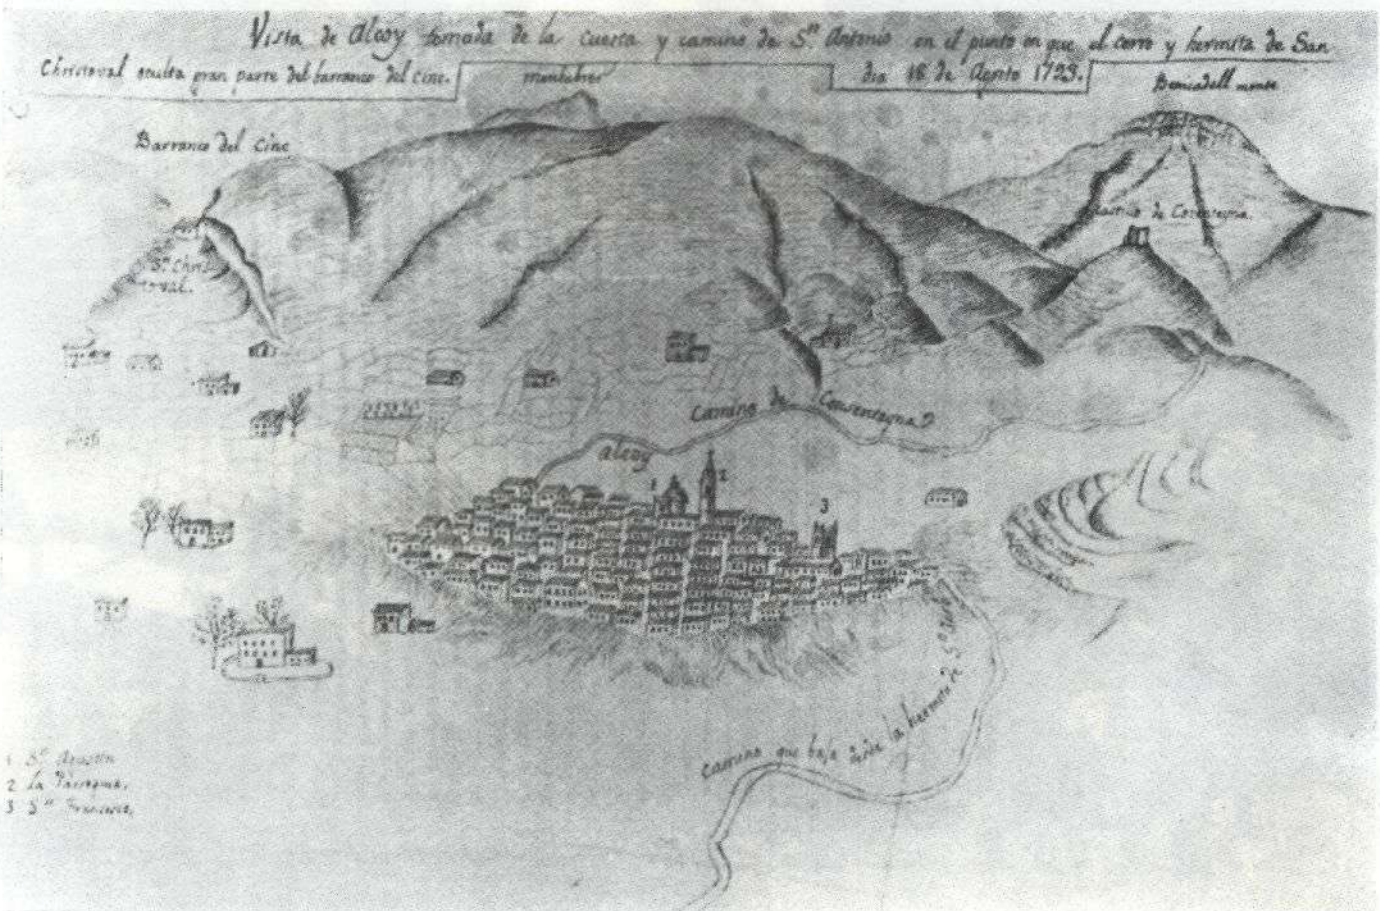 Vista de Alcoy tomada de la Cuesta y camino de Sn. Antonio en el punto en que el cerro y hermita de San
Christoval oculta gran parte del barranco del Cinc. dia 18 de Agosto 1793.
Benicadell monte
Barranco del Cinc
Sn. Chris
toval.
Castillo de Cocentayna.
Camino de Cocentayna
Alcoy
1
2
3
Camino que baja desde la hermita de Sn.
1 Sn. Agustin
2 La Parroquia.
3 Sn. Francisco.